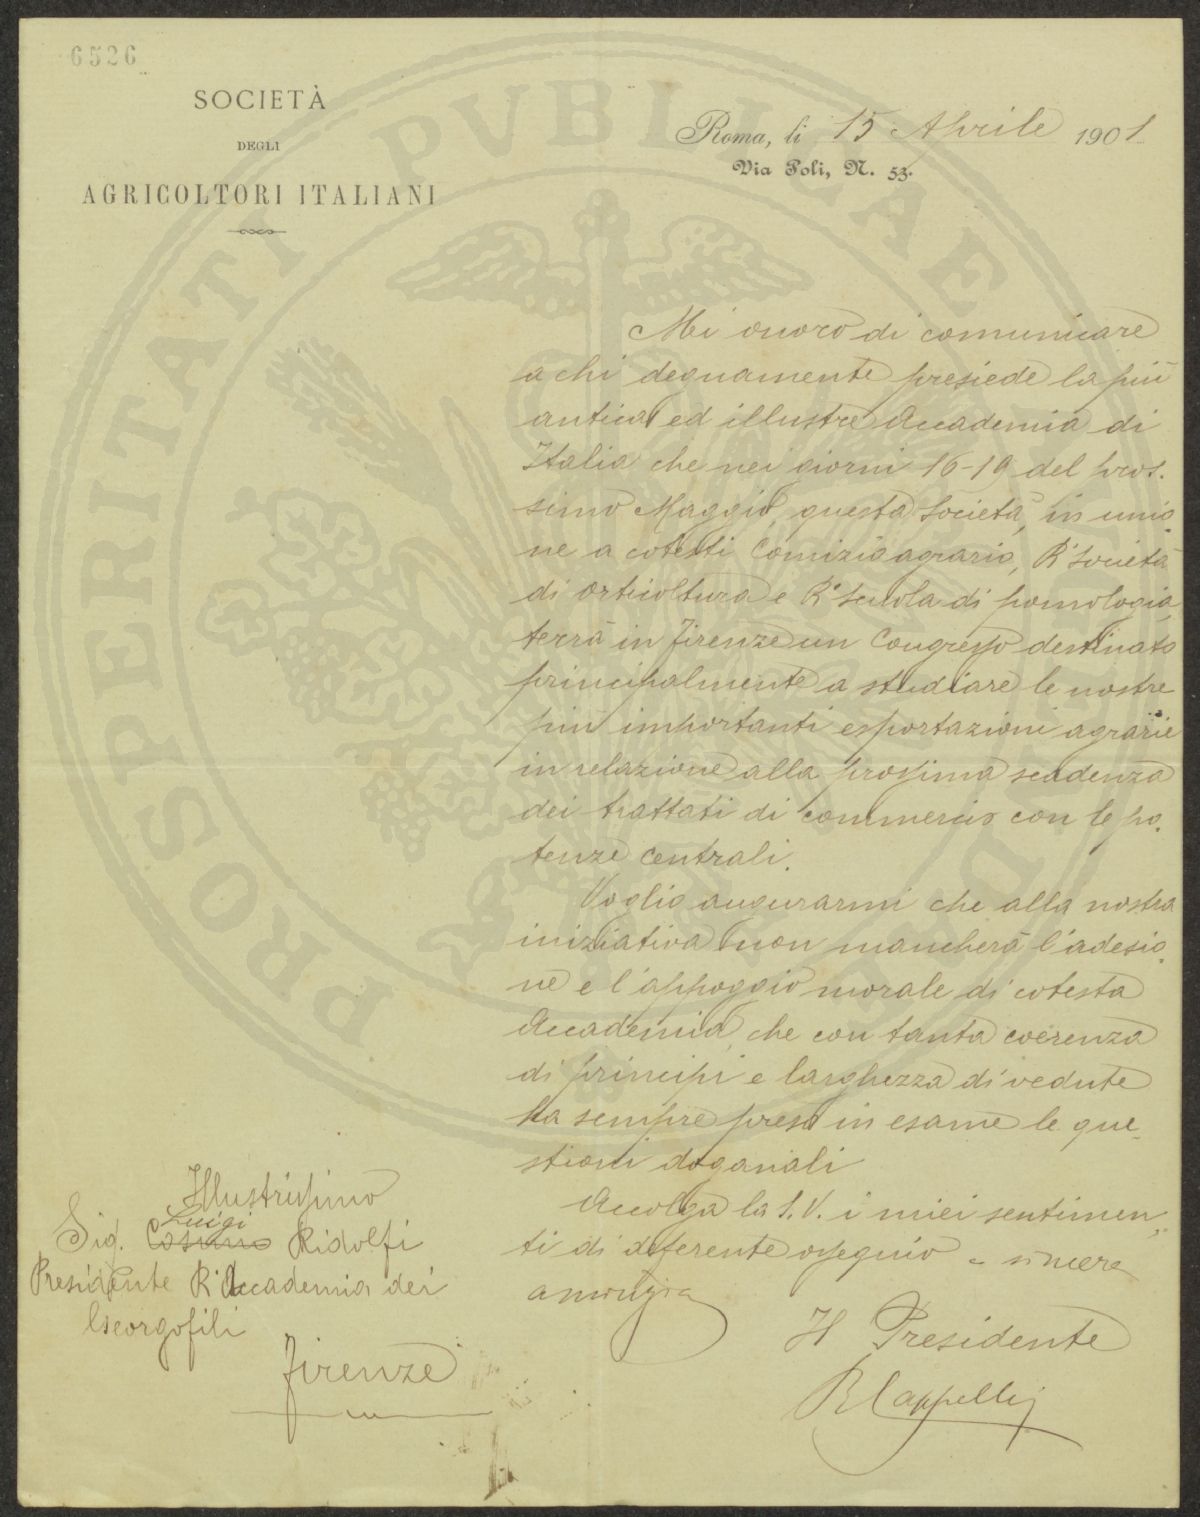 6526
SOCIETÀ
DEGLI
AGRICOLTORI ITALIANI
Roma, li 15 Aprile 1901
Via Poli, N. 53.
Mi onoro di comunicare
a chi degnamente presiede la più
antica ed illustre Accademia di
Italia che nei giorni 16-19 del pros-
simo Maggio, questa Società, in unio-
ne a cotesti Comizio agrario, R. Società
di orticoltura e R. Scuola di pomologia,
terrà in Firenze un Congresso destinato
principalmente a studiare le nostre
più importanti esportazioni agrarie
in relazione alla prossima scadenza
dei trattati di commercio con le po-
tenze centrali.
Voglio augurarmi che alla nostra
iniziativa non mancherà l'adesio-
ne e l'appoggio morale di cotesta
Accademia, che con tanta coerenza
di principi e larghezza di vedute
ha sempre preso in esame le que-
stioni doganali
Accolga la S. V. i miei sentimen-
ti di deferente ossequio e sincera
amicizia
Il Presidente
R Cappelli
Illustrissimo
Luigi
Sig. Cosimo Ridolfi
Presidente R. Accademia dei
Georgofili
Firenze
PROSPERITATI PVBLICAE